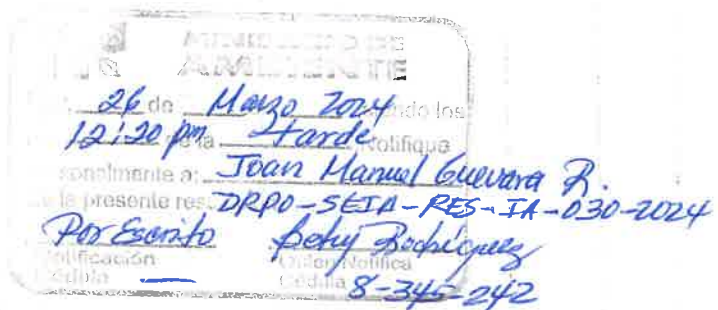 26 de Marzo 2024 siendo los
12:20 pm de la tarde Notifique
personalmente a: Joan Manuel Guevara R.
de la presente res. DRPO-SEIA-RES-IA-030-2024
Por Escrito Betzy Rodríguez
Notificación Quien Notifica
Cédula — Cédula 8-345-242